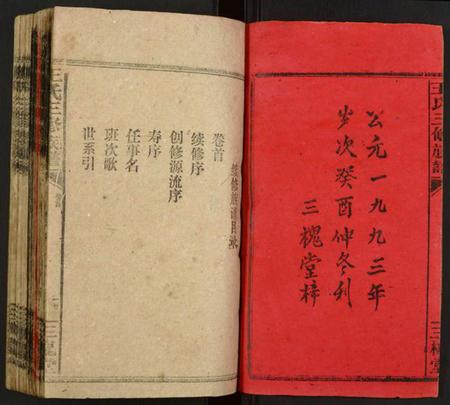 王氏三修族譜
公元一九九三年
岁次癸酉仲冬刊
三槐堂梓
三槐堂
续修族谱目录
卷首
续修序
创修源流序
寿序
任事名
班次歌
世系引
王氏三修族譜
三槐堂